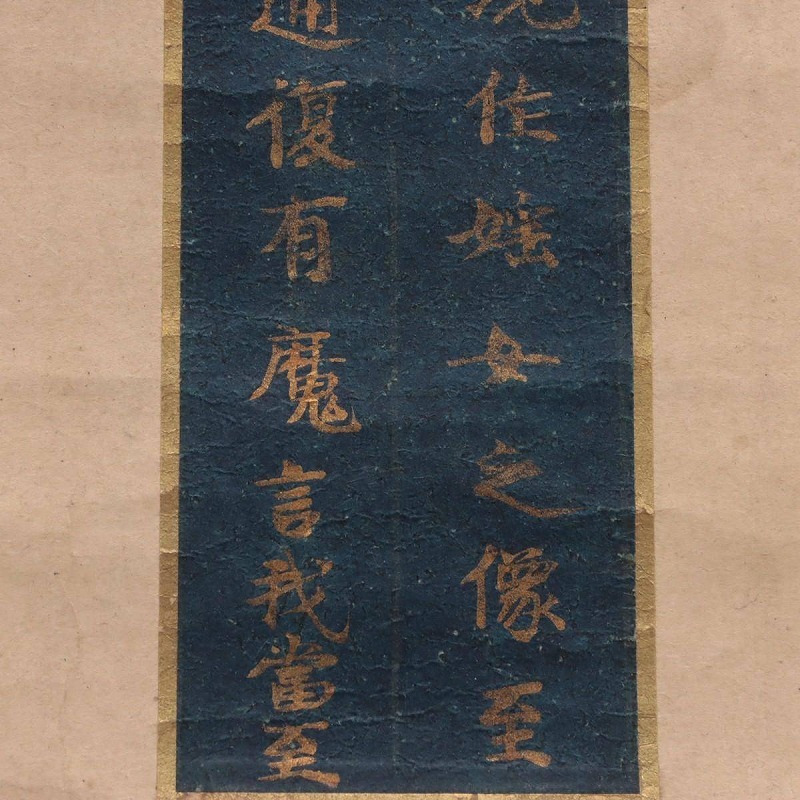 作媱女之像至
通復有魔言我當至